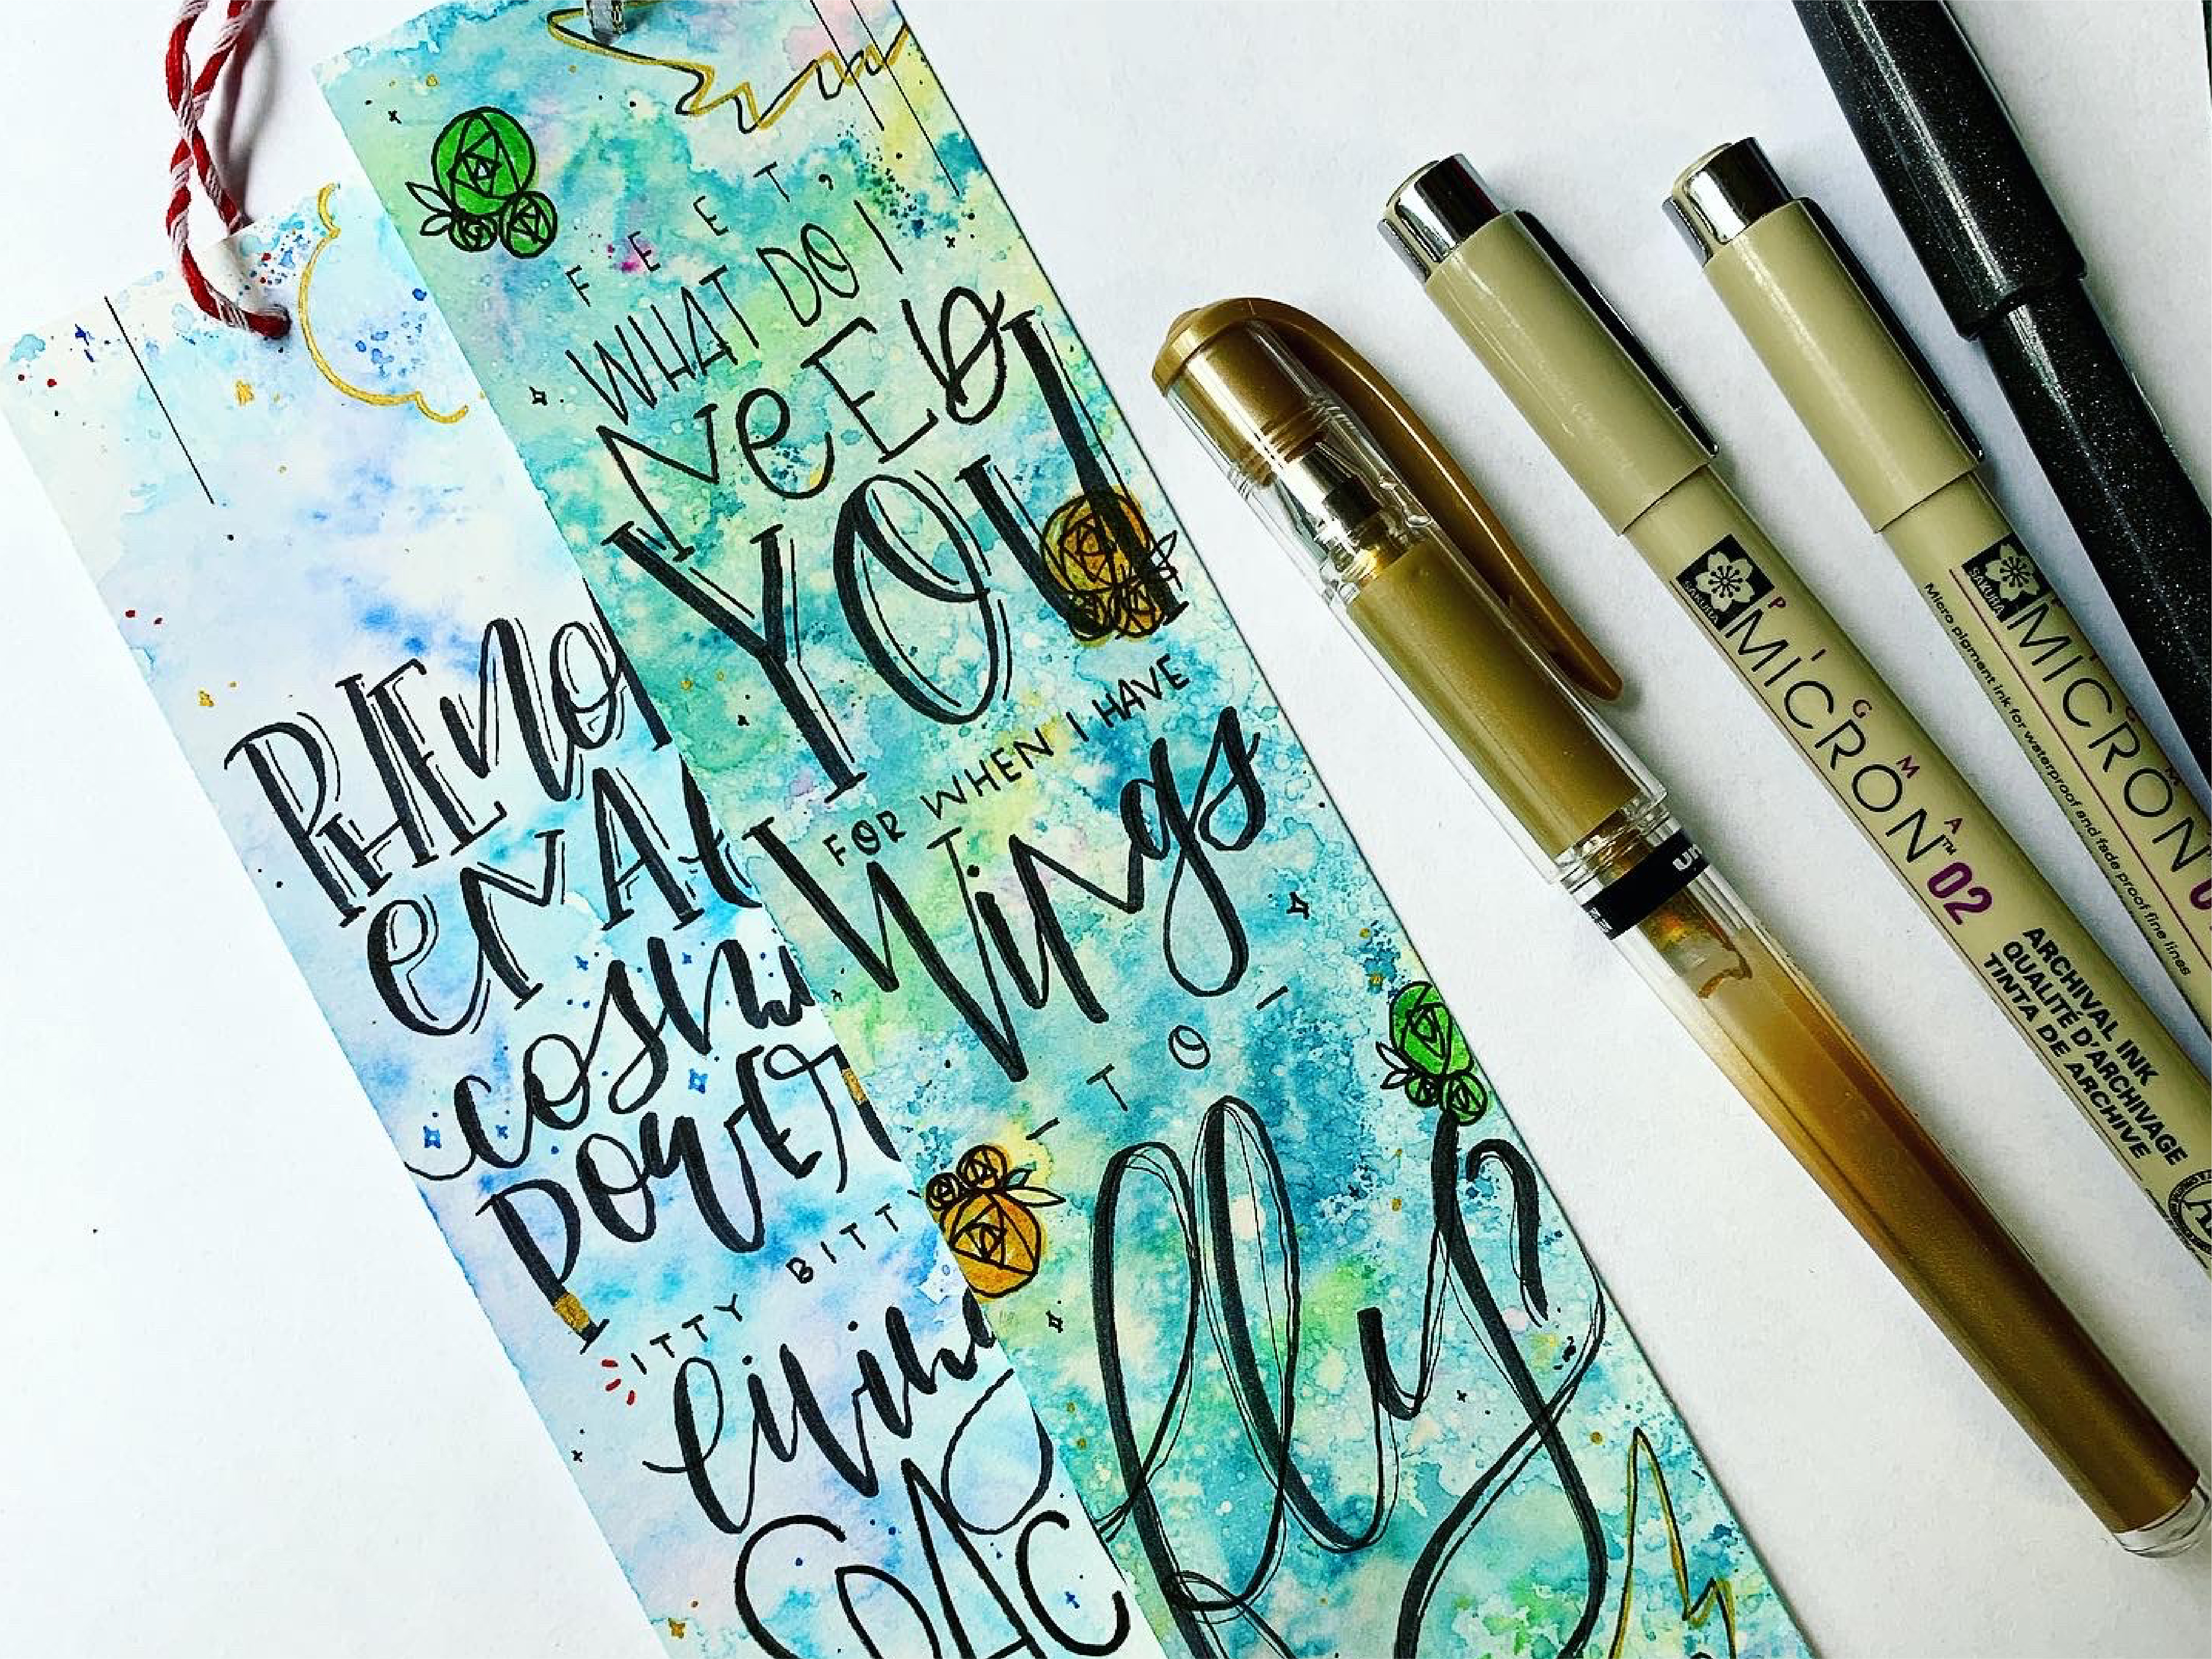 FEET,
WHAT DO I
NEED
YOU
FOR WHEN I HAVE
Wings
- TO -
fly
PHENO
ENAL
cosm
power
ITTY BITTY
livin
SPAC
SAKURA
PIGMA
MICRON™ 02
ARCHIVAL INK
QUALITÉ D'ARCHIVAGE
TINTA DE ARCHIVE
SAKURA
MICRON
Micro pigment ink for waterproof and fade proof fine lines
un